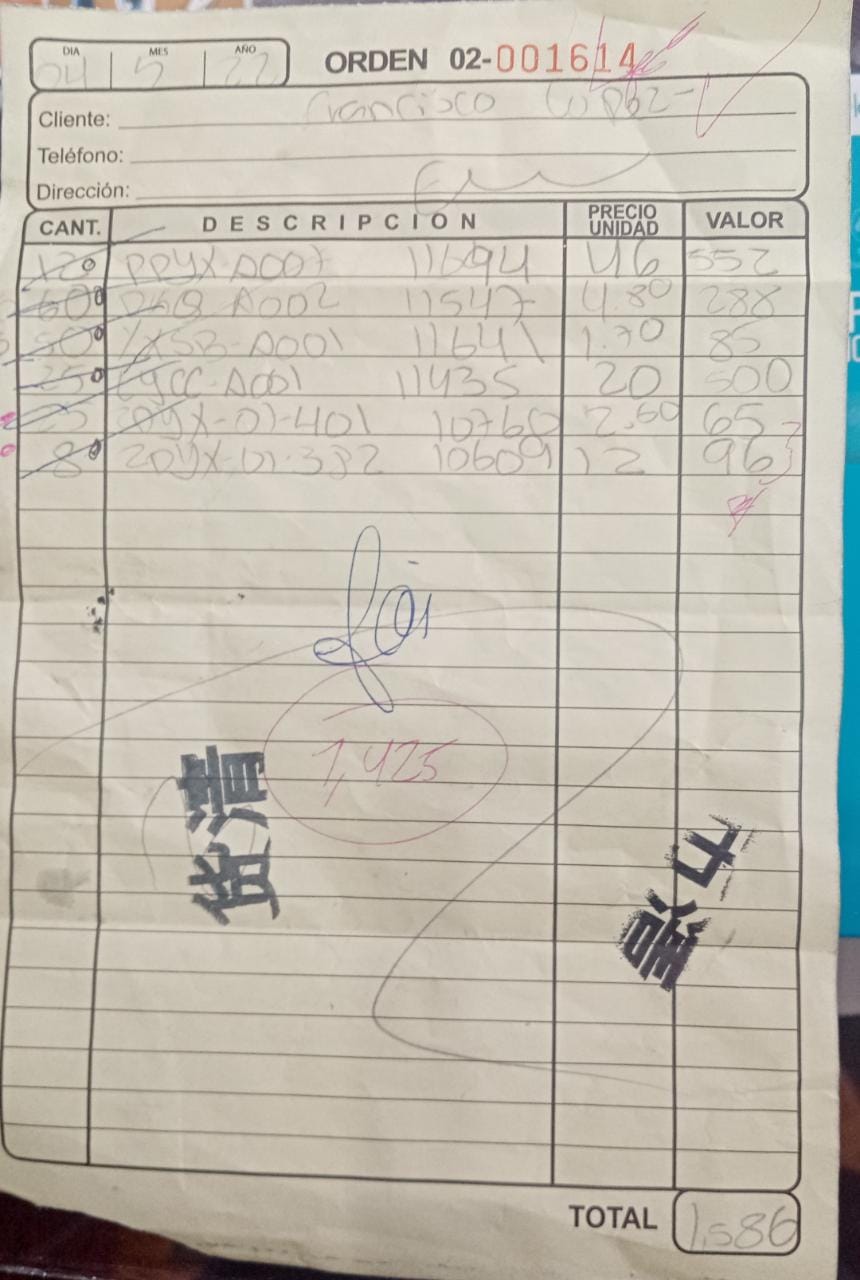 DIA MES AÑO
04 5 22
ORDEN 02-001614
Cliente: Francisco
Teléfono:
Dirección:
CANT. DESCRIPCION PRECIO UNIDAD VALOR
12 PPYX-A007 11694 46 552
60 A002 11547 4.80 288
50 YXSB-A001 11641 1.70 85
25 A001 11435 20 500
25 ZDYX-01-401 10760 2.60 65
8 ZDYX-01-382 10609 12 96
1,425
货清
TOTAL 1,586